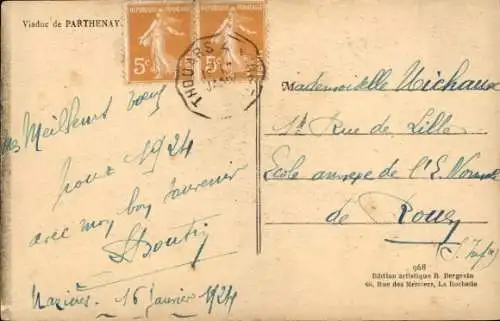 Viaduc de PARTHENAY.
REPUBLIQUE FRANÇAISE
5c
5c
THOUARS
Meilleurs vœux
pour 1924
avec mon bon souvenir
16 Janvier 1924
Mademoiselle Michaux
Rue de Lille
Ecole annexe de l'E. Normale
de Rouen
(S. Inf.)
968
Edition artistique B. Bergevin
66, Rue des Merciers, La Rochelle